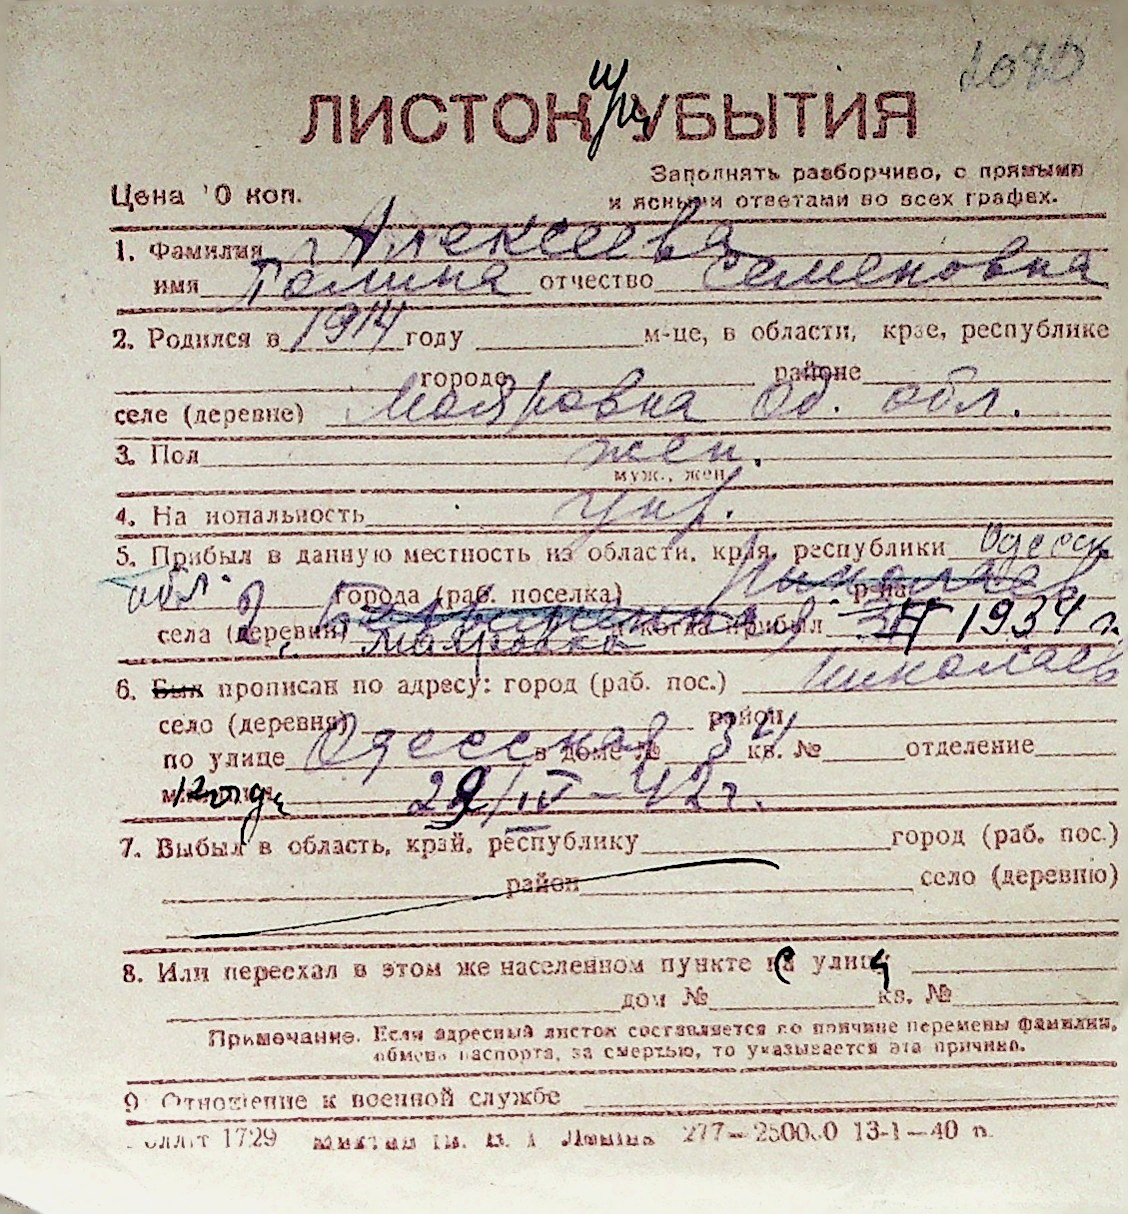 ЛИСТОК УБЫТИЯ
Цена 10 коп.
Заполнять разборчиво, с прямыми
и ясными ответами во всех графах.
1. Фамилия Алексеева
имя Галина отчество Семеновна
2. Родился в 1914 году м-це, в области, крае, республике
городе районе
селе (деревне) Маяровка Од. обл.
3. Пол жен.
муж., жен.
4. Национальность укр.
5. Прибыл в данную местность из области, края, республики Одесск.
обл. города (раб. поселка) Николаев р-на
села (деревни) и когда прибыл 1934 г.
с. Маяровка
6. Был прописан по адресу: город (раб. пос.) Николаев
село (деревня) район
по улице Одесская в доме № 34 кв. № отделение
когда 29/IV-42 г.
7. Выбыл в область, край, республику город (раб. пос.)
район село (деревню)
8. Или переехал в этом же населенном пункте с улицы
дом № кв. №
Примечание. Если адресный листок составляется по причине перемены фамилии,
обмена паспорта, за смертью, то указывается эта причина.
9. Отношение к военной службе
1729 277—250000 13-1—40 п.